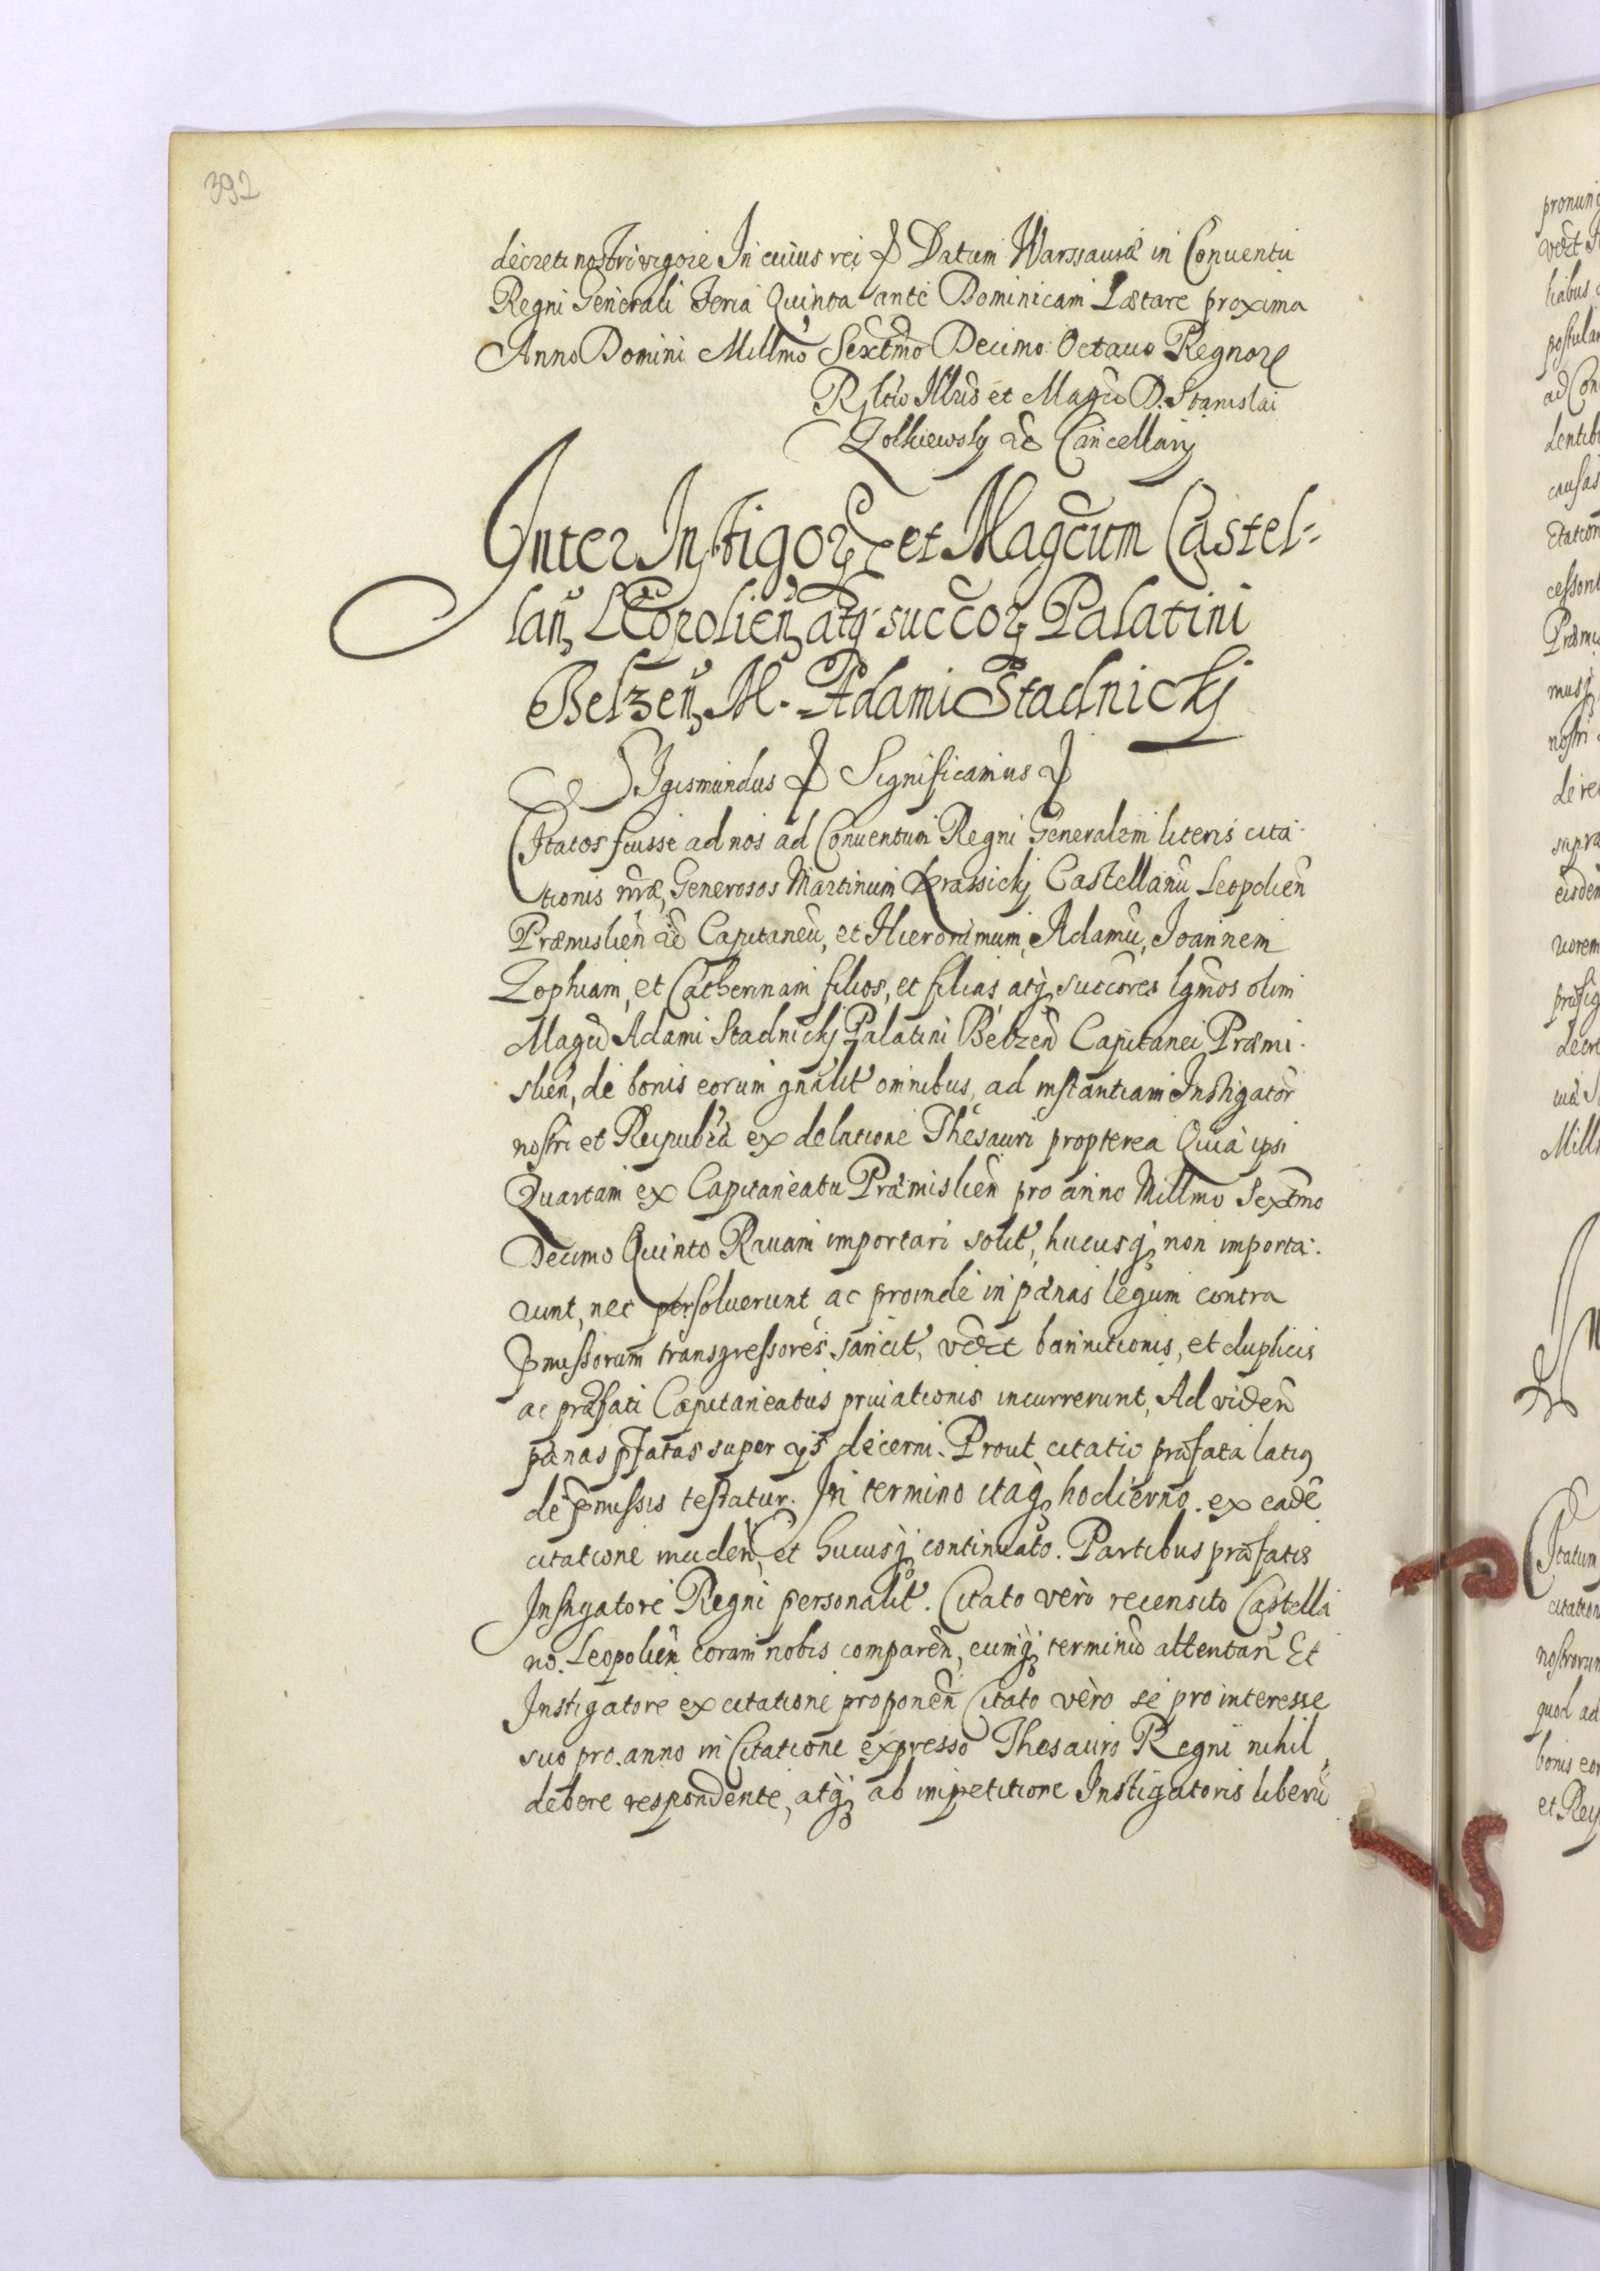 392
decreti nostri vigore In cuius rei & Datum Warssauiæ in Conuentu
Regni Generali Feria Quinta ante Dominicam Lætare proxima
Anno Domini Millmo Sextmo Decimo Octauo Regnor
Rltio Illris et Magci D. Stanislai
Zolkiewsky &c Cancellarij
Inter Instigor et Magcum Castel-
lan Leopolien atq succor Palatini
Belzen M. Adami Stadnickj
Sigismundus & Significamus &
Citatos fuisse ad nos ad Conuentum Regni Generalem literis cita-
tionis nræ, Generosos Martinum Krassickj Castellanu Leopolien
Præmislien &c Capitaneu, et Hieronimum, Adamu, Joannem
Zophiam, et Catherinam filios, et filias, atq succores lgmos olim
Magci Adami Stadnickj Palatini Belzen Capitanei Præmi-
slien, de bonis eorum gnalit omnibus, ad instantiam Instigator
nostri et Reipublca ex delatione Thesauri propterea Quia ipsi
Quartam ex Capitaneatu Præmislien pro anno Millmo Sextmo
Decimo Quinto Rauam importari solit, hucusq non importa-
runt, nec persoluerunt ac proinde in pænas legum contra
pmissorum transgressores sancit, vdct bannitionis, et duplicis
ac præfati Capitaneatus priuationis incurrerunt, Ad viden
pænas pfatas super ijs decerni. Prout citatio præfata latiq
de pmissis testatur. In termino itaq hodierno ex eade
citatione inciden, et hucusq continuato. Partibus præfatis
Instigatore Regni personalit. Citato vero recensito Castella
no Leopolien coram nobis comparen, eumq terminu attentan Et
Instigatore ex citatione proponen Citato vero se pro interesse
suo pro anno in Citatione expresso Thesauro Regni nihil
debere respondente, atq ab impetitione Instigatoris liberu